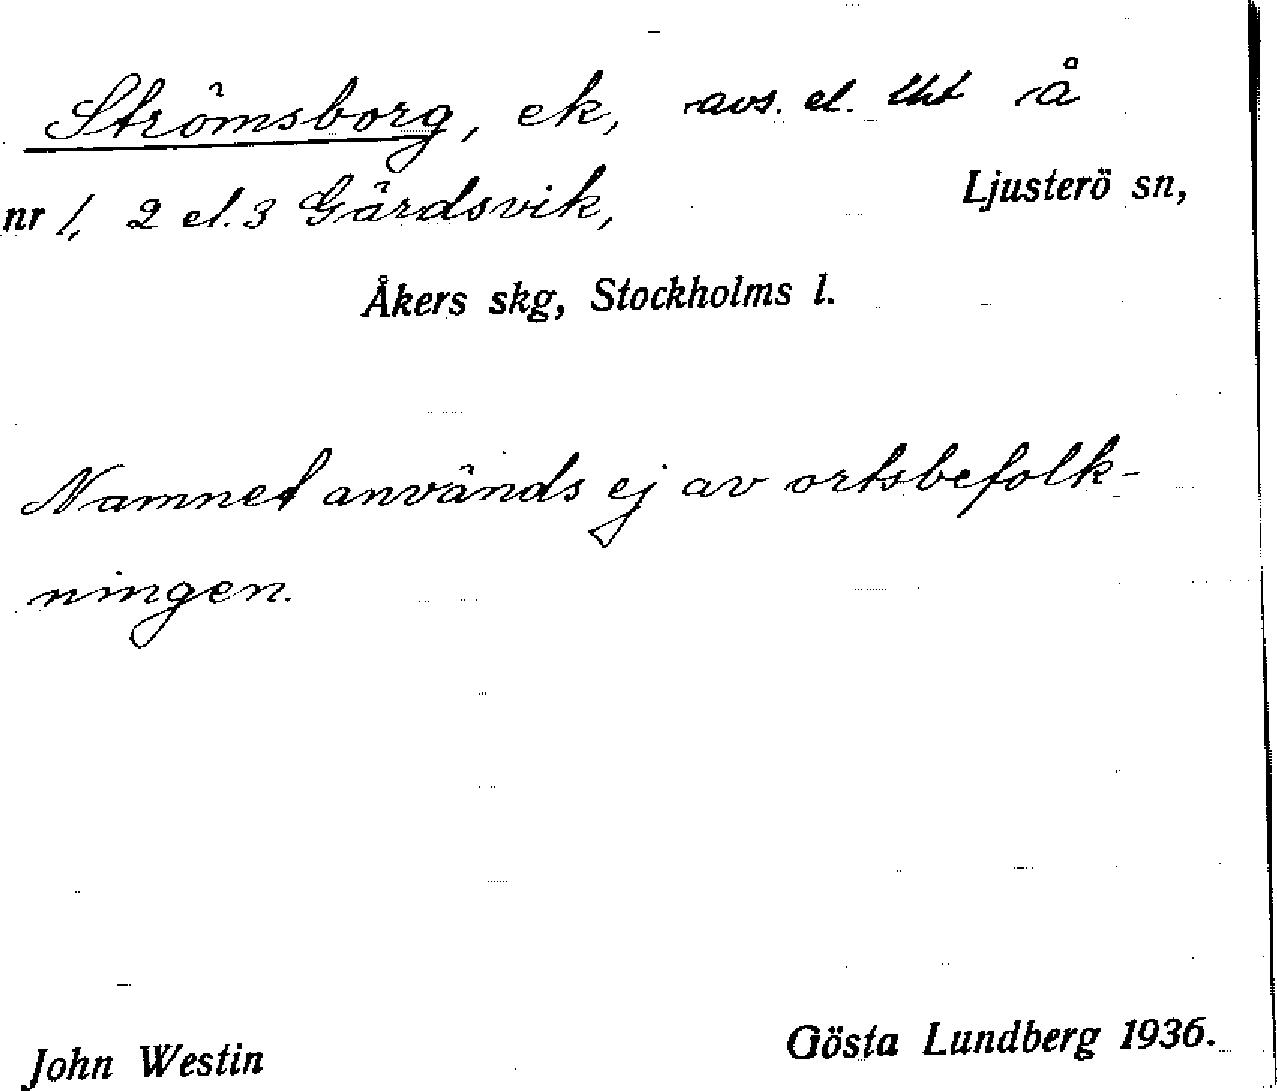 Strömsborg, ek, avs. el. lht å
nr 1, 2 el. 3 Gärdsvik, Ljusterö sn,
Åkers skg, Stockholms l.
Namnet används ej av ortsbefolk-
ningen.
John Westin Gösta Lundberg 1936.